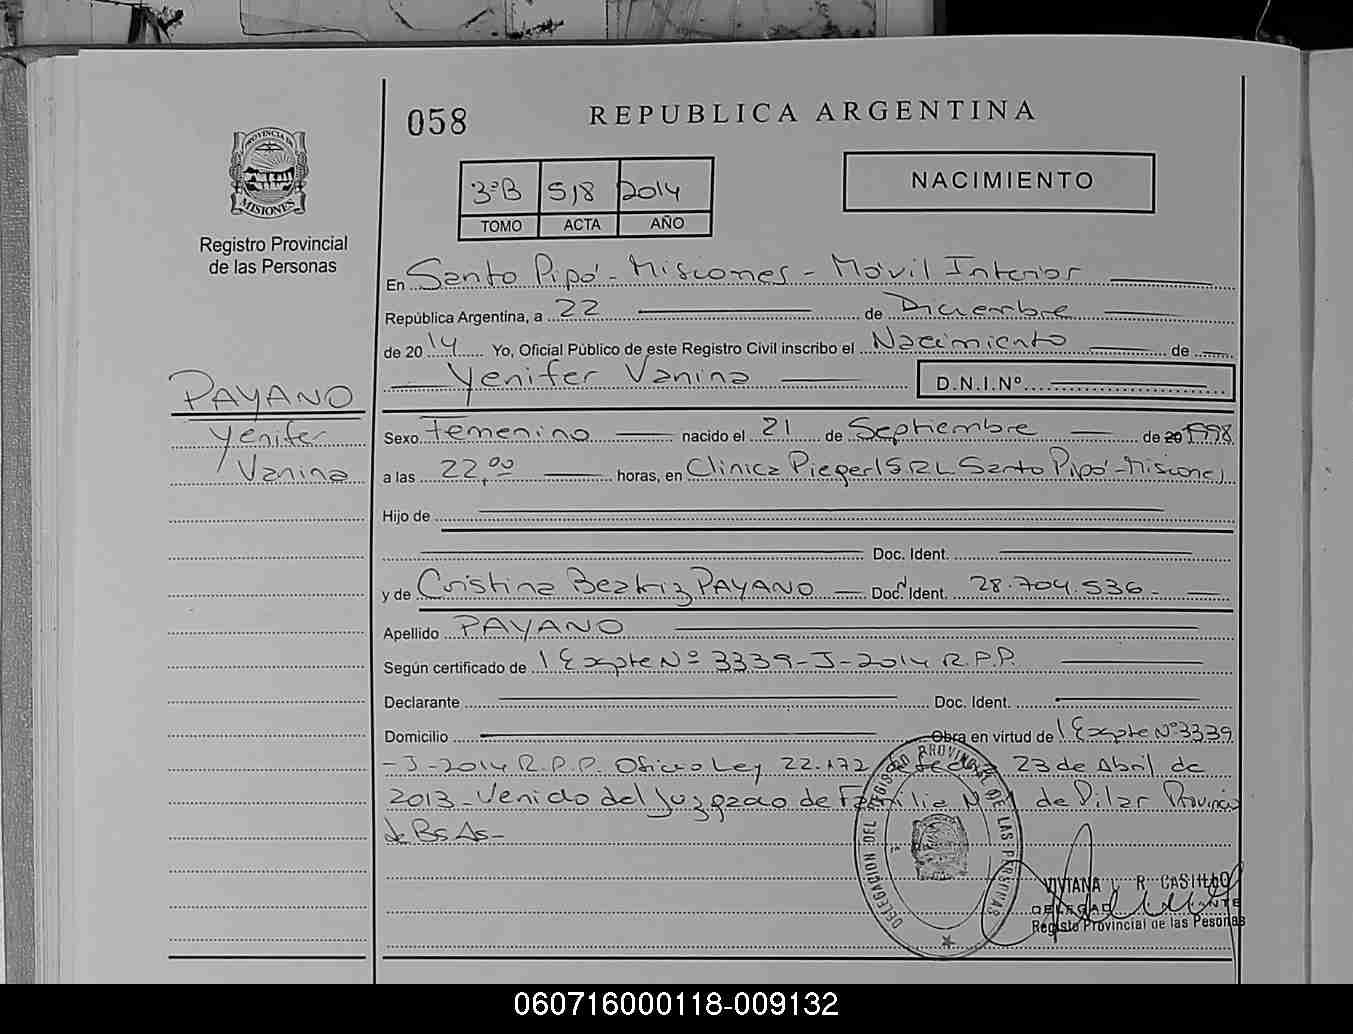 058
REPUBLICA ARGENTINA
PROVINCIA DE
MISIONES
Registro Provincial
de las Personas
3ºB 518 2014
TOMO ACTA AÑO
NACIMIENTO
En Santo Pipó - Misiones - Móvil Interior
República Argentina, a 22 de Diciembre
de 2014 Yo, Oficial Público de este Registro Civil inscribo el Nacimiento de
Yenifer Vanina D.N.I.Nº
PAYANO
Yenifer
Vanina
Sexo Femenino nacido el 21 de Septiembre de 20 1998
a las 22,00 horas, en Clinica Piegerl S R L Santo Pipó - Misiones
Hijo de
Doc. Ident.
y de Cristina Beatriz PAYANO Doc. Ident. 28.704.536-
Apellido PAYANO
Según certificado de Expte Nº 3339-J-2014 R.P.P.
Declarante Doc. Ident.
Domicilio Obra en virtud de Expte Nº 3339
-J-2014 R.P.P. Oficio Ley 22.172 23 de Abril de
2013 - Venido del Juzgado de Familia de Pilar Provincia
de Bs As-
DELEGACION DEL REGISTRO PROVINCIAL DE LAS PERSONAS
VIVIANA R. CASILLO
Registo Provincial de las Pesonas
060716000118-009132